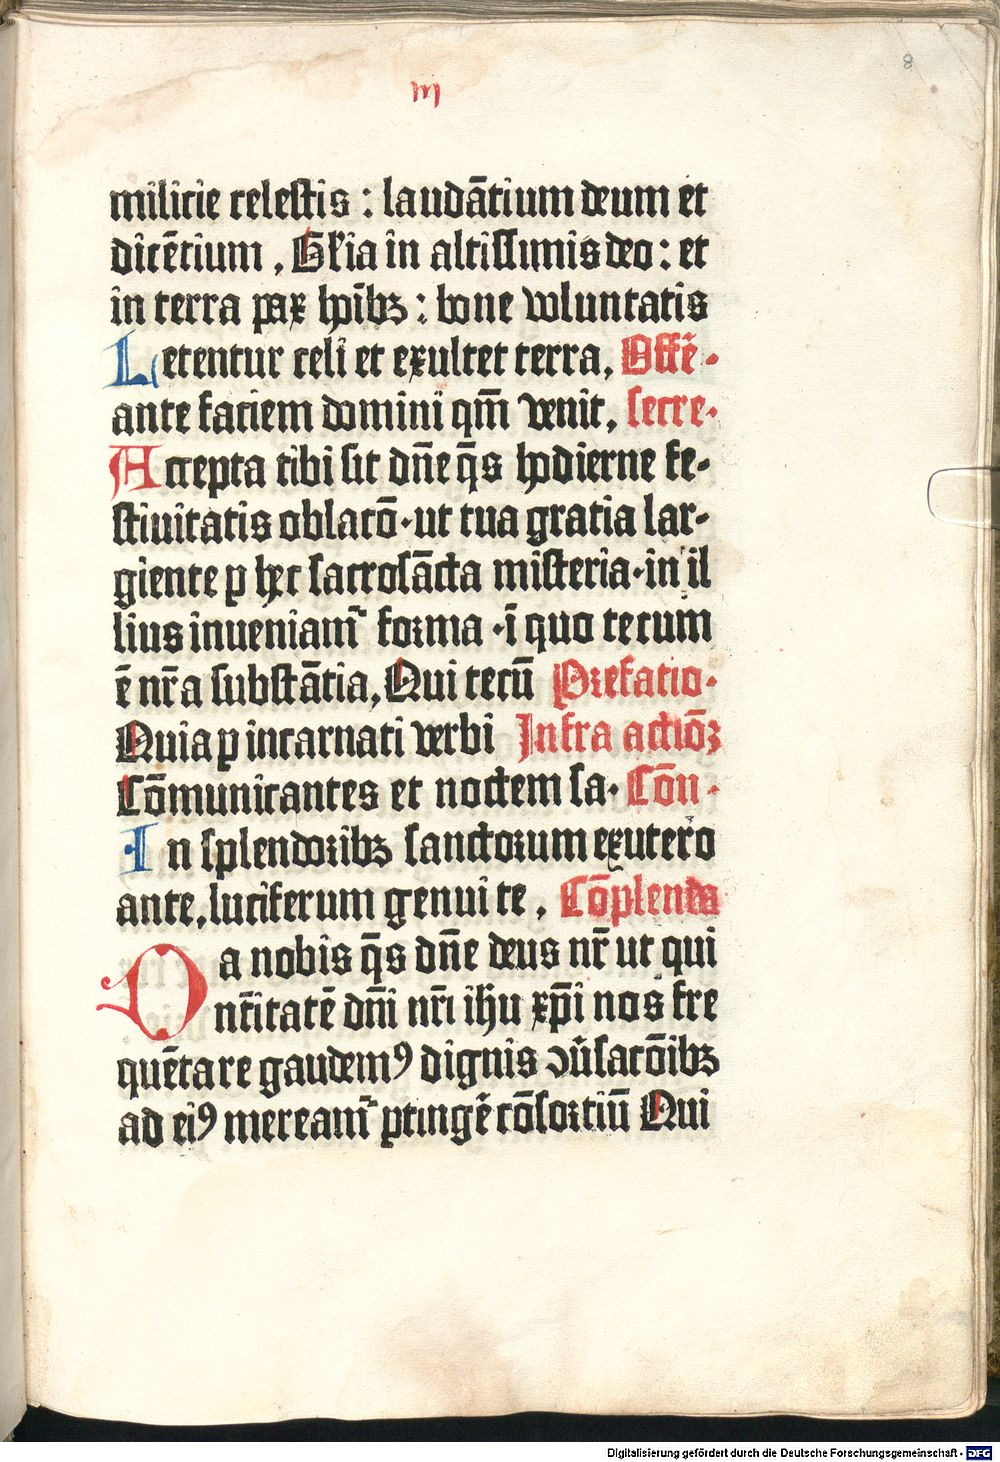 8
III
milicie celestis : laudātium deum et
dicētium , Gl̄ia in altissimis deo : et
in terra pax hoı̄bꝫ : bone voluntatis
Letentur celi et exultet terra, Offē·
ante faciem domini qm̄ venit, secre·
Accepta tibi sit dn̄e q̄s hodierne fe-
stiuitatis oblatō· ut tua gratia lar-
giente p hec sacrosācta misteria· in il
lius inueniam̄ forma · ī quo tecum
ē nr̄a substātia, Qui tecū Prefatio·
Quia p incarnati verbi Infra actiōꝫ
Cōmunicantes et noctem sa· Cōn·
In splendoribꝫ sanctorum ex utero
ante, luciferum genui te , Cōplenda
Da nobis q̄s dn̄e deus nr̄ ut qui
natı̄tatē dn̄i nr̄i ihu xp̄i nos fre
quētare gaudemꝰ dignis ↄūsatōibꝫ
ad eiꝰ meream̄ ptingē cōsortiū Qui
Digitalisierung gefördert durch die Deutsche Forschungsgemeinschaft - DFG